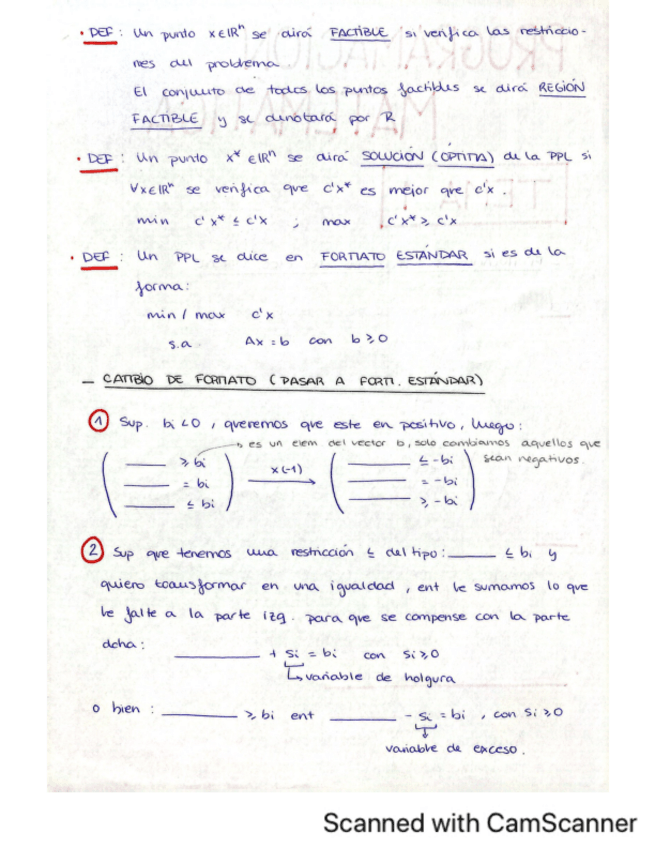 • DEF : Un punto x∈ℝⁿ se dirá FACTIBLE si verifica las restriccio-
nes del problema
El conjunto de todos los puntos factibles se dirá REGIÓN
FACTIBLE y se denotará por R
• DEF : Un punto x* ∈ℝⁿ se dirá SOLUCIÓN (ÓPTIMA) de la PPL si
∀x∈ℝⁿ se verifica que c'x* es mejor que c'x.
min c'x* ≤ c'x ; max c'x* ≥ c'x
• DEF : Un PPL se dice en FORMATO ESTÁNDAR si es de la
forma:
min / max c'x
s.a. Ax = b con b ≥ 0
— CAMBIO DE FORMATO ( PASAR A FORM. ESTÁNDAR)
① Sup. bi < 0 , queremos que este en positivo, luego:
→ es un elem del vector b, solo cambiamos aquellos que
sean negativos.
( ____ ≥ bi ) x(-1) → ( ____ ≤ -bi )
____ = bi ____ = -bi
____ ≤ bi ____ ≥ -bi
② Sup que tenemos una restricción ≤ del tipo: ____ ≤ bi y
quiero transformar en una igualdad, ent le sumamos lo que
le falte a la parte izq. para que se compense con la parte
dcha:
____ + si = bi con si ≥ 0
↳ variable de holgura
o bien : ____ ≥ bi ent ____ - si = bi , con si ≥ 0
↓
variable de exceso.
Scanned with CamScanner